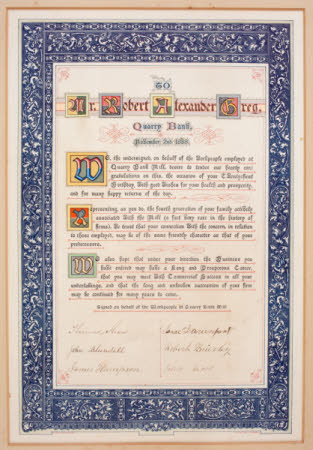 TO
Mr. Robert Alexander Greg,
Quarry Bank,
We, the undersigned, on behalf of the Workpeople employed at
Quarry Bank Mill, desire to tender our hearty
congratulations on this, the occasion of your
Birthday, with good wishes for your health and prosperity,
and for many happy returns of the day.
Representing, as you do, the fourth generation of your family
associated with the Mill (a fact very rare in the history of
firms). We trust that your connection with the concern, in relation
to those employed, may be of the same friendly character as that of your
predecessors.
We also hope that under your direction the Business you
have entered may have a Long and Prosperous Career,
that you may meet with Commercial Success in all your
undertakings, and that the long and unbroken succession of your firm
may be continued for many years to come.
Signed on behalf of the Workpeople at Quarry Bank Mill
Isaac Davenport
John Blundell
James Thompson